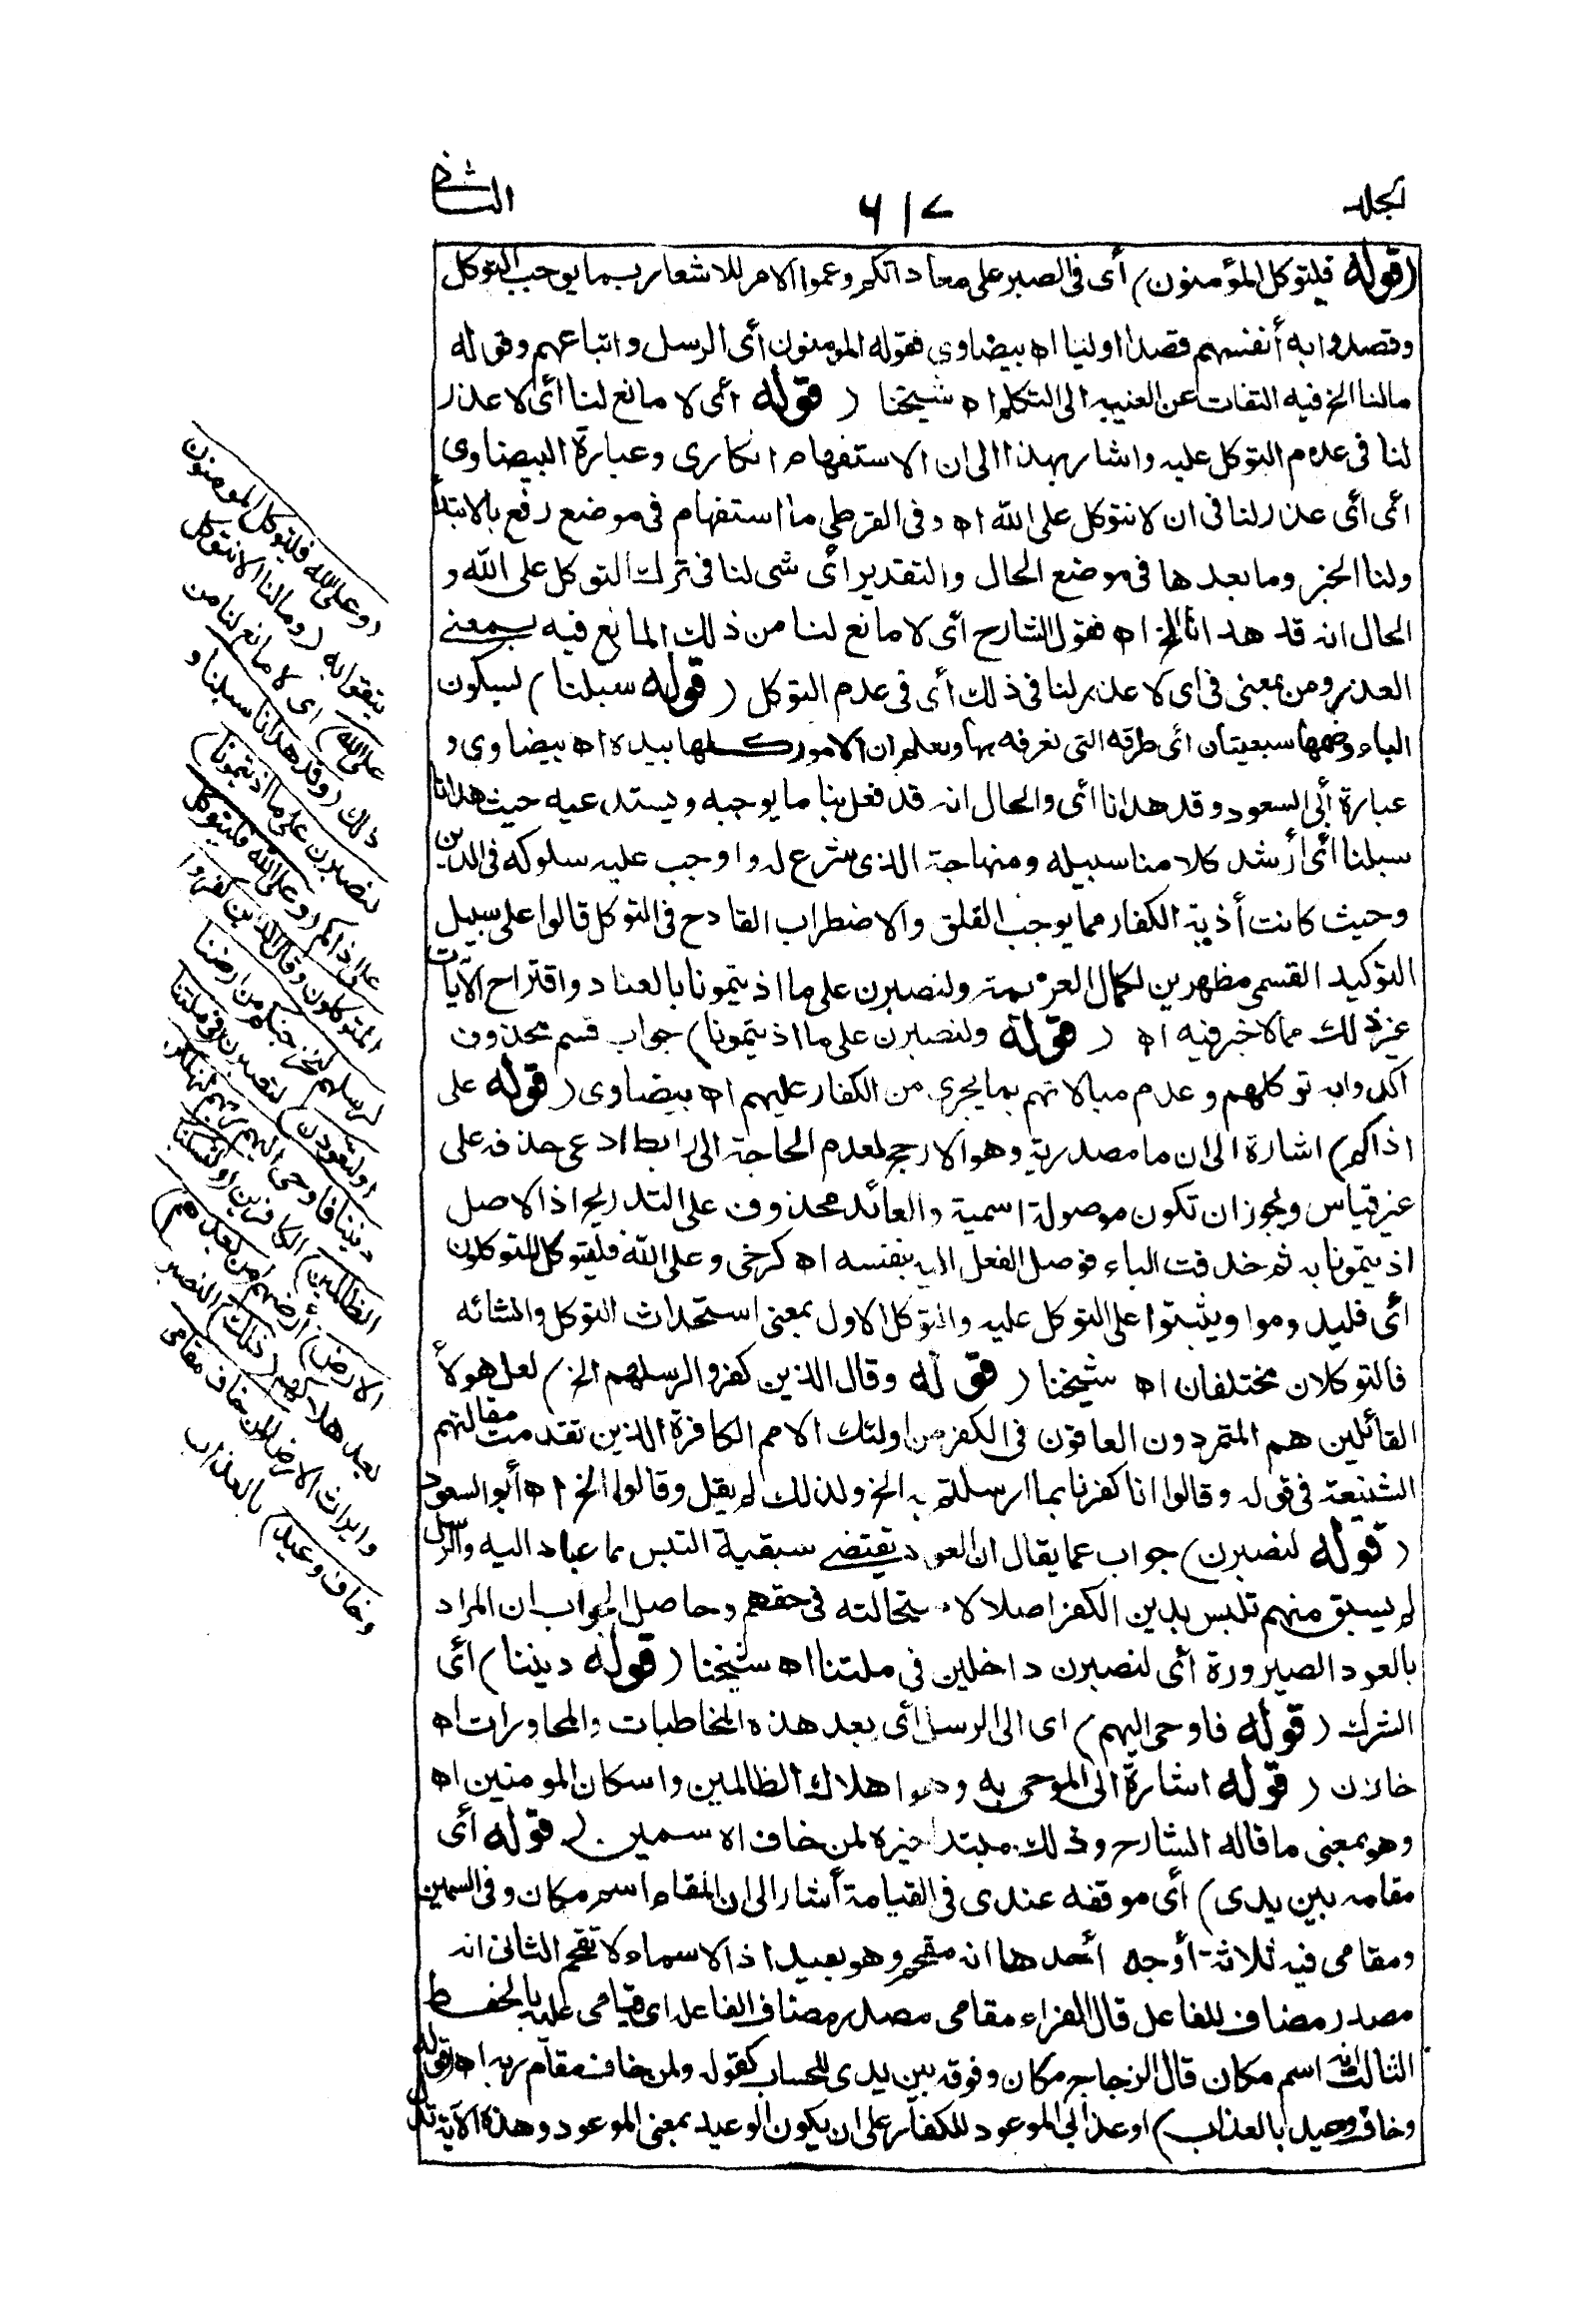 المجلد
٦١٧
الثاني
(قوله فليتوكل المؤمنون) أى فى الصبر على معاداتكم وعموا الامر للاشعار بما يوجب التوكل
وقصدوا به أنفسهم قصدا اوليا اه بيضاوى فقوله المومنون أى الرسل واتباعهم وقوله
مالنا الخ فيه التفات عن الغيبه الى التكلم اه شيخنا ( قوله اى لا مانع لنا أى لا عذر
لنا فى عدم التوكل عليه واشار بهذا الى ان الاستفهام انكارى وعبارة البيضاوى
أى أى عذر لنا فى ان لا نتوكل على الله اه وفى القرطبي ما استفهام فى موضع رفع بالابتدأ
ولنا الخبر وما بعدها فى موضع الحال والتقدير أى شى لنا فى ترك التوكل على الله و
الحال انه قد هدانا الخ اه فقول الشارح أى لا مانع لنا من ذلك المانع فيه بمعنى
العذر ومن بمعنى فى اى لا عذر لنا فى ذلك أى فى عدم التوكل ( قوله سبلنا ) بسكون
الباء وضمها سبعيتان أى طرقه التى نعرفه بها ونعلم ان الامور كلها بيده اه بيضاوى و
عبارة أبى السعود وقد هدانا أى والحال انه قد فعل بنا ما يوجبه ويستدعيه حيث هدانا
سبلنا أى أرشد كلا منا سبيله ومنهاجه الذى شرع له واوجب عليه سلوكه فى الدين
وحيث كانت أذية الكفار مما يوجب القلق والاضطراب القادح فى التوكل قالوا على سبيل
التوكيد القسمى مظهرين لكمال العزيمة ولنصبرن على ما اذيتمونا بالعناد واقتراح الآيات
غير ذلك مما لا خير فيه اه ( قوله ولنصبرن على ما اذيتمونا) جواب قسم محذوف
اكدوا به توكلهم وعدم مبالاتهم بما يجرى من الكفار عليهم اه بيضاوى ( قوله على
اذاكم) اشارة الى ان ما مصدرية وهو الارجح لعدم الحاجة الى رابط ادعى حذفه على
غير قياس ويجوز ان تكون موصولة اسمية والعائد محذوف على التدريج اذ الاصل
اذيتمونا به ثم حذفت الباء فوصل الفعل اليه بنفسه اه كرخى وعلى الله فليتوكل المتوكلون
أى فليدوموا ويثبتوا على التوكل عليه والتوكل الاول بمعنى استحداث التوكل وانشائه
فالتوكلان مختلفان اه شيخنا ( قوله وقال الذين كفروا لرسلهم الخ) لعل هولأ
القائلين هم المتمردون العاتون فى الكفر من اولئك الامم الكافرة الذين تقدمت مقالتهم
الشنيعة فى قوله وقالوا انا كفرنا بما ارسلتم به الخ ولذلك لم يقل وقالوا الخ اه أبو السعود
( قوله لنصيرن) جواب عما يقال ان العود يقتضى سبقية التلبس بما عاد اليه والرسل
لم يسبق منهم تلبس بدين الكفر اصلا لاستحالته فى حقهم وحاصل الجواب ان المراد
بالعود الصيرورة أى لنصيرن داخلين فى ملتنا اه شيخنا ( قوله ديننا) أى
الشرك ( قوله فاوحى اليهم) اى الى الرسل أى بعد هذه المخاطبات والمحاورات اه
خازن ( قوله اشارة الى الموحى به وهو اهلاك الظالمين واسكان المومنين اه
وهو بمعنى ما قاله الشارح وذلك مبتدأ خبره لمن خاف اه سمين ( قوله أى
مقامه بين يدى) أى موقفه عندى فى القيامة أشار الى ان المقام اسم مكان وفى السمين
ومقامى فيه ثلاثة أوجه أحدها انه مقحم وهو بعيد اذ الاسماء لا تقحم الثانى انه
مصدر مضاف للفاعل قال الفراء مقامى مصدر مضاف لفاعله اى قيامى عليه بالحفظ
الثالث انه اسم مكان قال الزجاج مكان وقوفه بين يدى للحساب كقوله ولمن خاف مقام ربه اه (قوله
وخاف وعيد بالعذاب) او عذابى الموعود للكفار على ان يكون الوعيد بمعنى الموعود وهذه الآية تدل
(وعلى الله فليتوكل المومنون
يتقوا به (ومالنا الا نتوكل
على الله) اى لا مانع لنا من
ذلك (وقد هدانا سبلنا و
لنصبرن على ما اذيتمونا)
على اذاكم (وعلى الله فليتوكل
المتوكلون وقال الذين كفروا
لرسلهم لنخرجنكم من ارضنا
اولتعودن) لتصيرن (فى ملتنا
ديننا فاوحى اليهم ربهم لنهلكن
الظالمين) الكافرين (ولنسكننكم
الارض) أرضهم (من بعدهم)
بعد هلاكهم (ذلك) النصر
وايراث الارض (لمن خاف مقامى
وخاف وعيد) بالعذاب